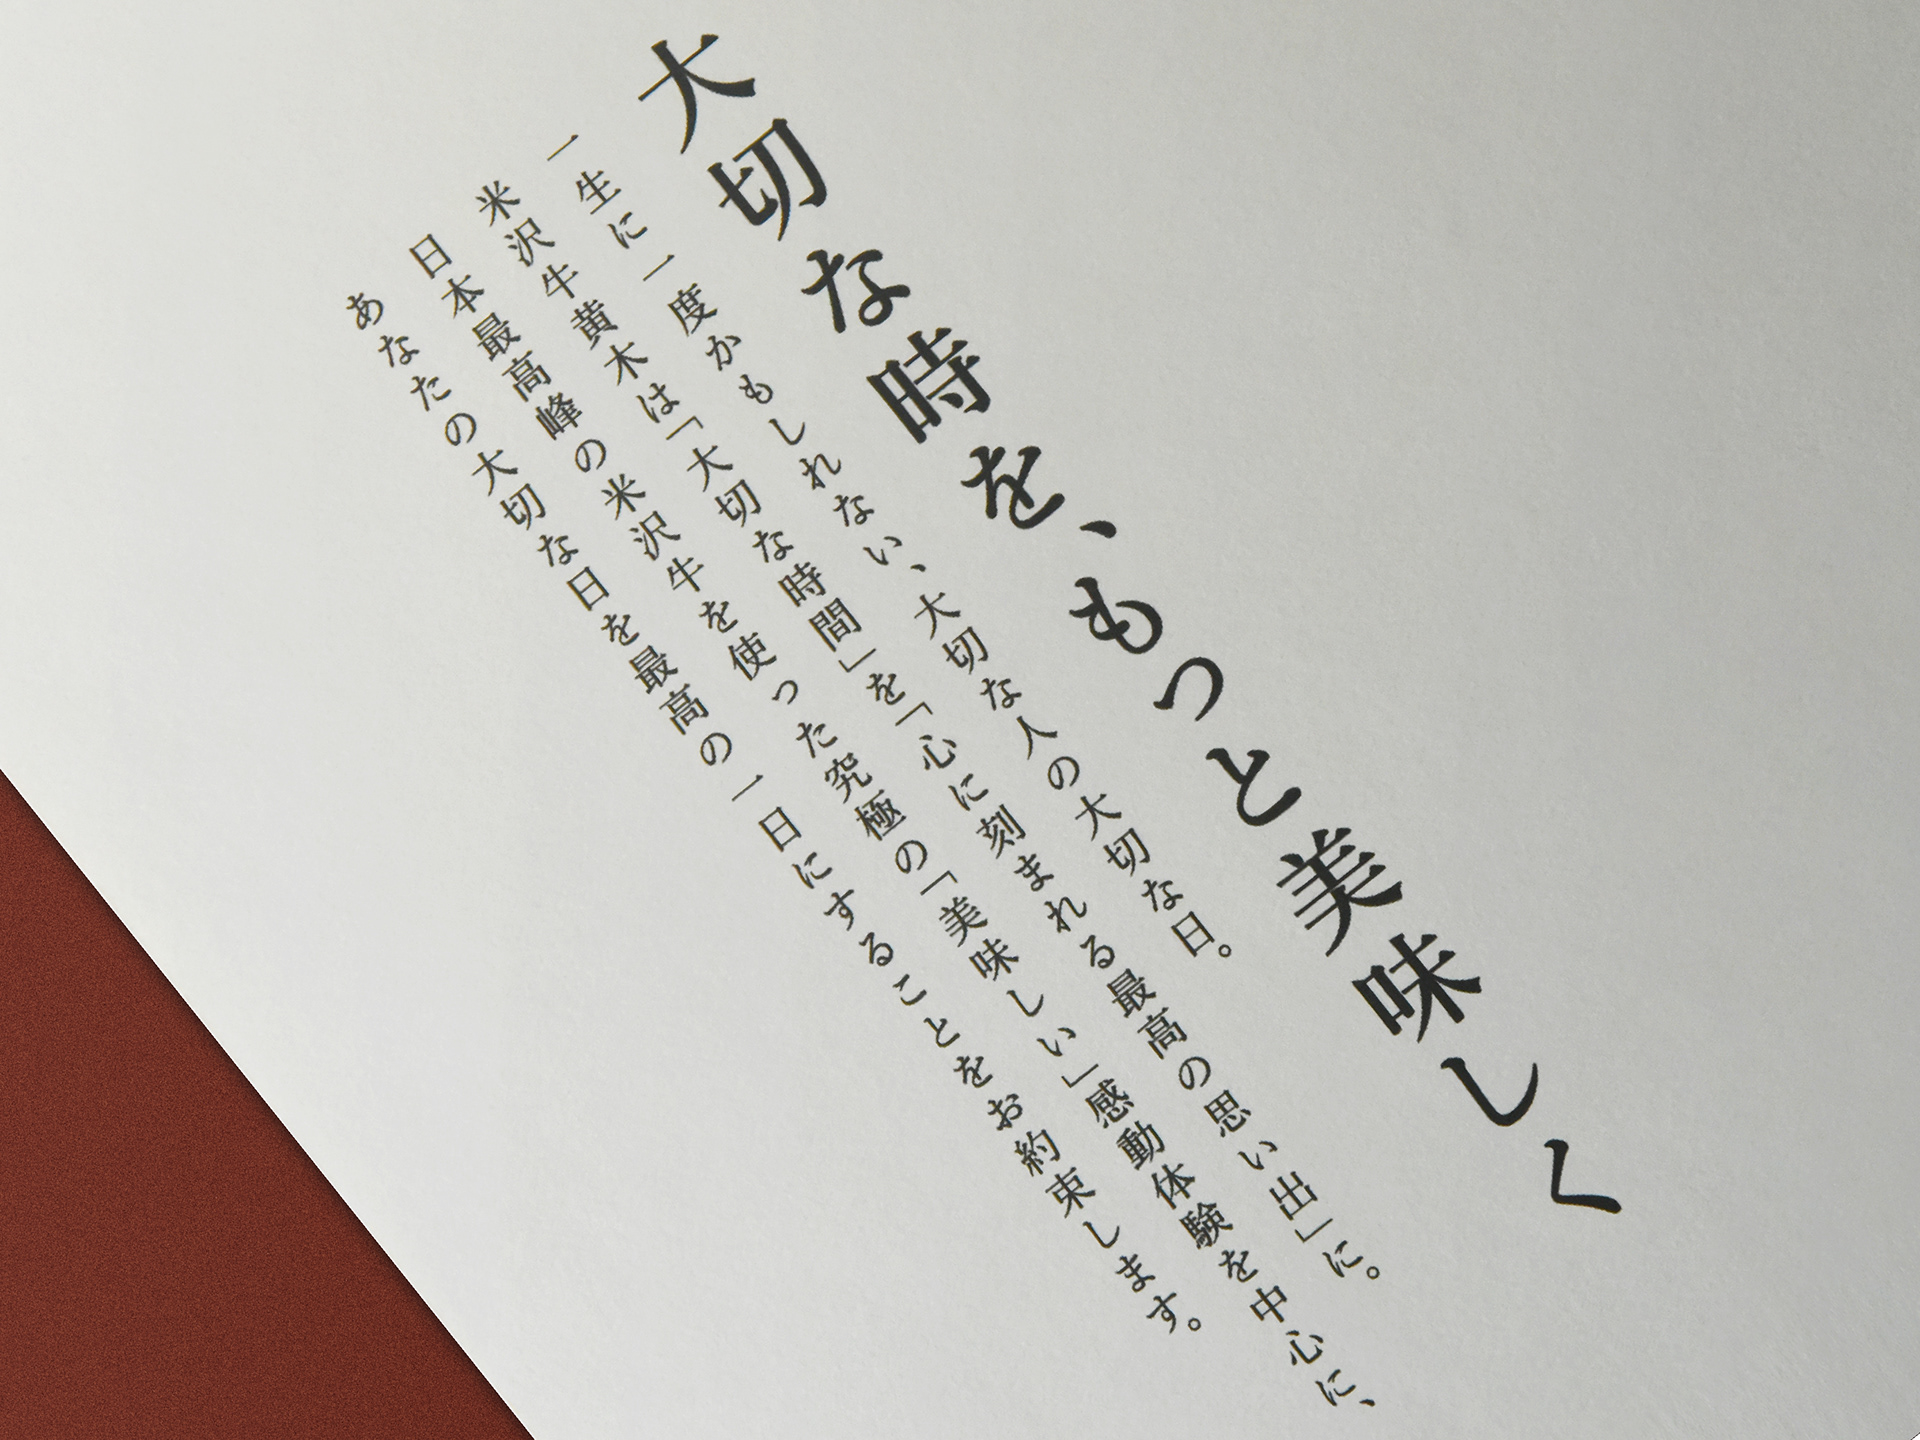 大切な時を、もっと美味しく
一生に一度かもしれない、大切な人の大切な日。
米沢牛黄木は「大切な時間」を「心に刻まれる最高の思い出」に。
日本最高峰の米沢牛を使った究極の「美味しい」感動体験を中心に、
あなたの大切な日を最高の一日にすることをお約束します。